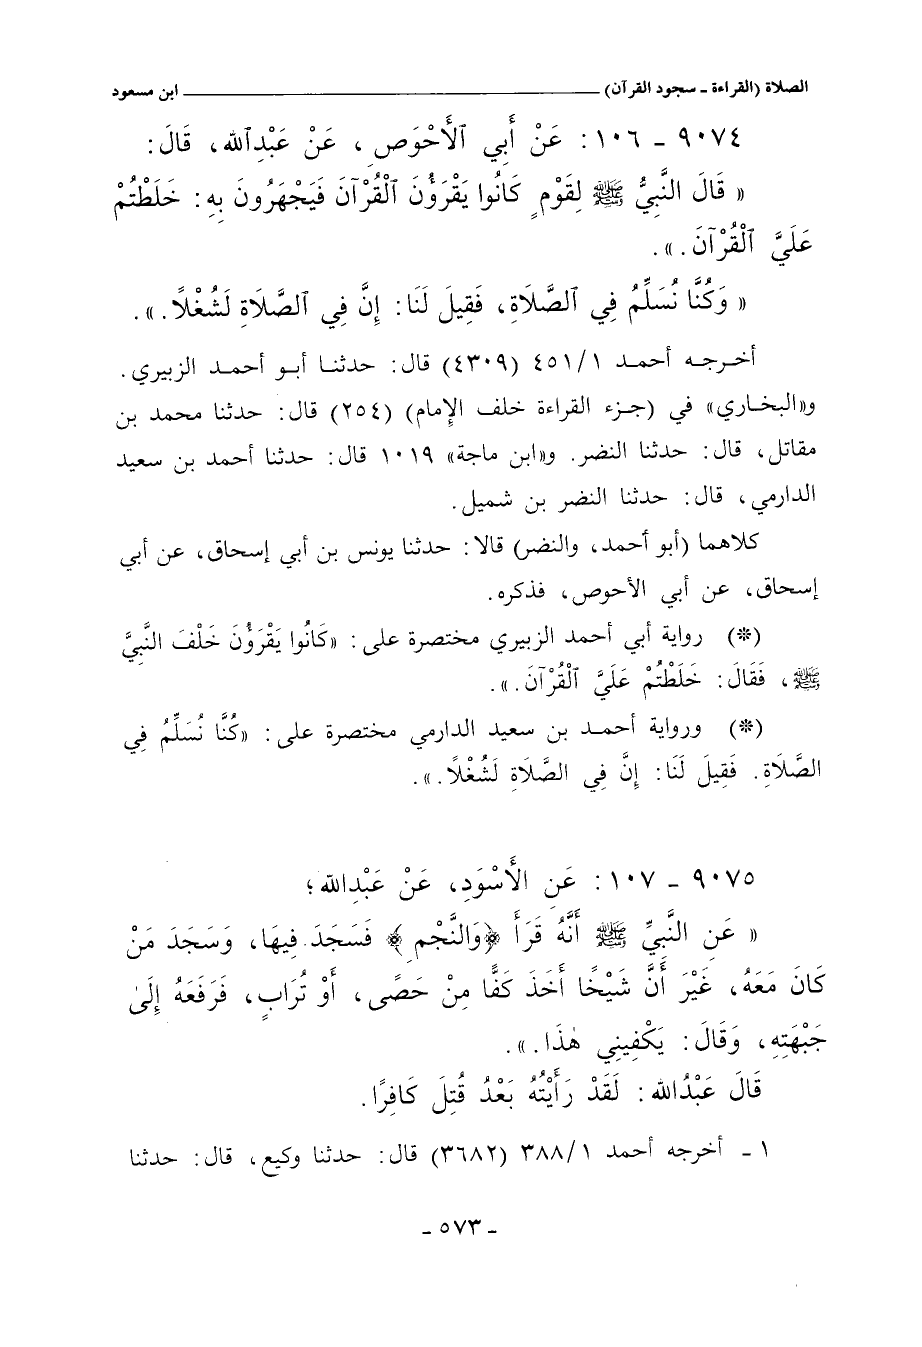 الصلاة (القراءة - سجود القرآن) ابن مسعود
٩٠٧٤ - ١٠٦ : عَنْ أَبِي ٱلْأَحْوَصِ ، عَنْ عَبْدِٱللهِ، قَالَ:
« قَالَ النَّبِيُّ ﷺ لِقَوْمٍ كَانُوا يَقْرَؤُنَ ٱلْقُرْآنَ فَيَجْهَرُونَ بِهِ: خَلَطْتُمْ
عَلَيَّ ٱلْقُرْآنَ . ».
« وَكُنَّا نُسَلِّمُ فِي ٱلصَّلَاةِ، فَقِيلَ لَنَا: إِنَّ فِي ٱلصَّلَاةِ لَشُغْلًا. ».
أخرجه أحمد ٤٥١/١ (٤٣٠٩) قال: حدثنا أبو أحمد الزبيري .
و«البخاري» في (جزء القراءة خلف الإمام) (٢٥٤) قال: حدثنا محمد بن
مقاتل، قال: حدثنا النضر. و«ابن ماجة» ١٠١٩ قال: حدثنا أحمد بن سعيد
الدارمي، قال: حدثنا النضر بن شميل.
كلاهما (أبو أحمد، والنضر) قالا: حدثنا يونس بن أبي إسحاق، عن أبي
إسحاق، عن أبي الأحوص، فذكره.
(*) رواية أبي أحمد الزبيري مختصرة على: «كَانُوا يَقْرَؤُنَ خَلْفَ النَّبِيِّ
ﷺ، فَقَالَ: خَلَطْتُمْ عَلَيَّ ٱلْقُرْآنَ . ».
(*) ورواية أحمد بن سعيد الدارمي مختصرة على: «كُنَّا نُسَلِّمُ فِي
الصَّلَاةِ. فَقِيلَ لَنَا: إِنَّ فِي الصَّلَاةِ لَشُغْلًا. ».
٩٠٧٥ - ١٠٧ : عَنِ الْأَسْوَدِ، عَنْ عَبْدِاللهِ؛
« عَنِ النَّبِيِّ ﷺ أَنَّهُ قَرَأَ ﴿وَالنَّجْمِ﴾ فَسَجَدَ فِيهَا، وَسَجَدَ مَنْ
كَانَ مَعَهُ، غَيْرَ أَنَّ شَيْخًا أَخَذَ كَفًّا مِنْ حَصًى، أَوْ تُرَابٍ، فَرَفَعَهُ إِلَىٰ
جَبْهَتِهِ، وَقَالَ: يَكْفِينِي هٰذَا. ».
قَالَ عَبْدُاللهِ: لَقَدْ رَأَيْتُهُ بَعْدُ قُتِلَ كَافِرًا.
١ - أخرجه أحمد ٣٨٨/١ (٣٦٨٢) قال: حدثنا وكيع، قال: حدثنا
- ٥٧٣ -